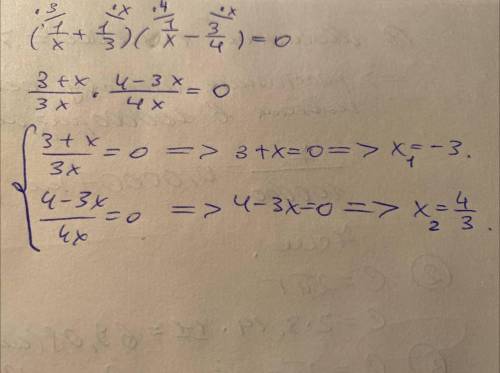 ·3 ·x ·4 ·x
(1/x + 1/3)(1/x - 3/4) = 0
3+x/3x · 4-3x/4x = 0
{ 3+x/3x = 0 => 3+x=0 => x₁=-3.
4-3x/4x = 0 => 4-3x=0 => x₂=4/3.